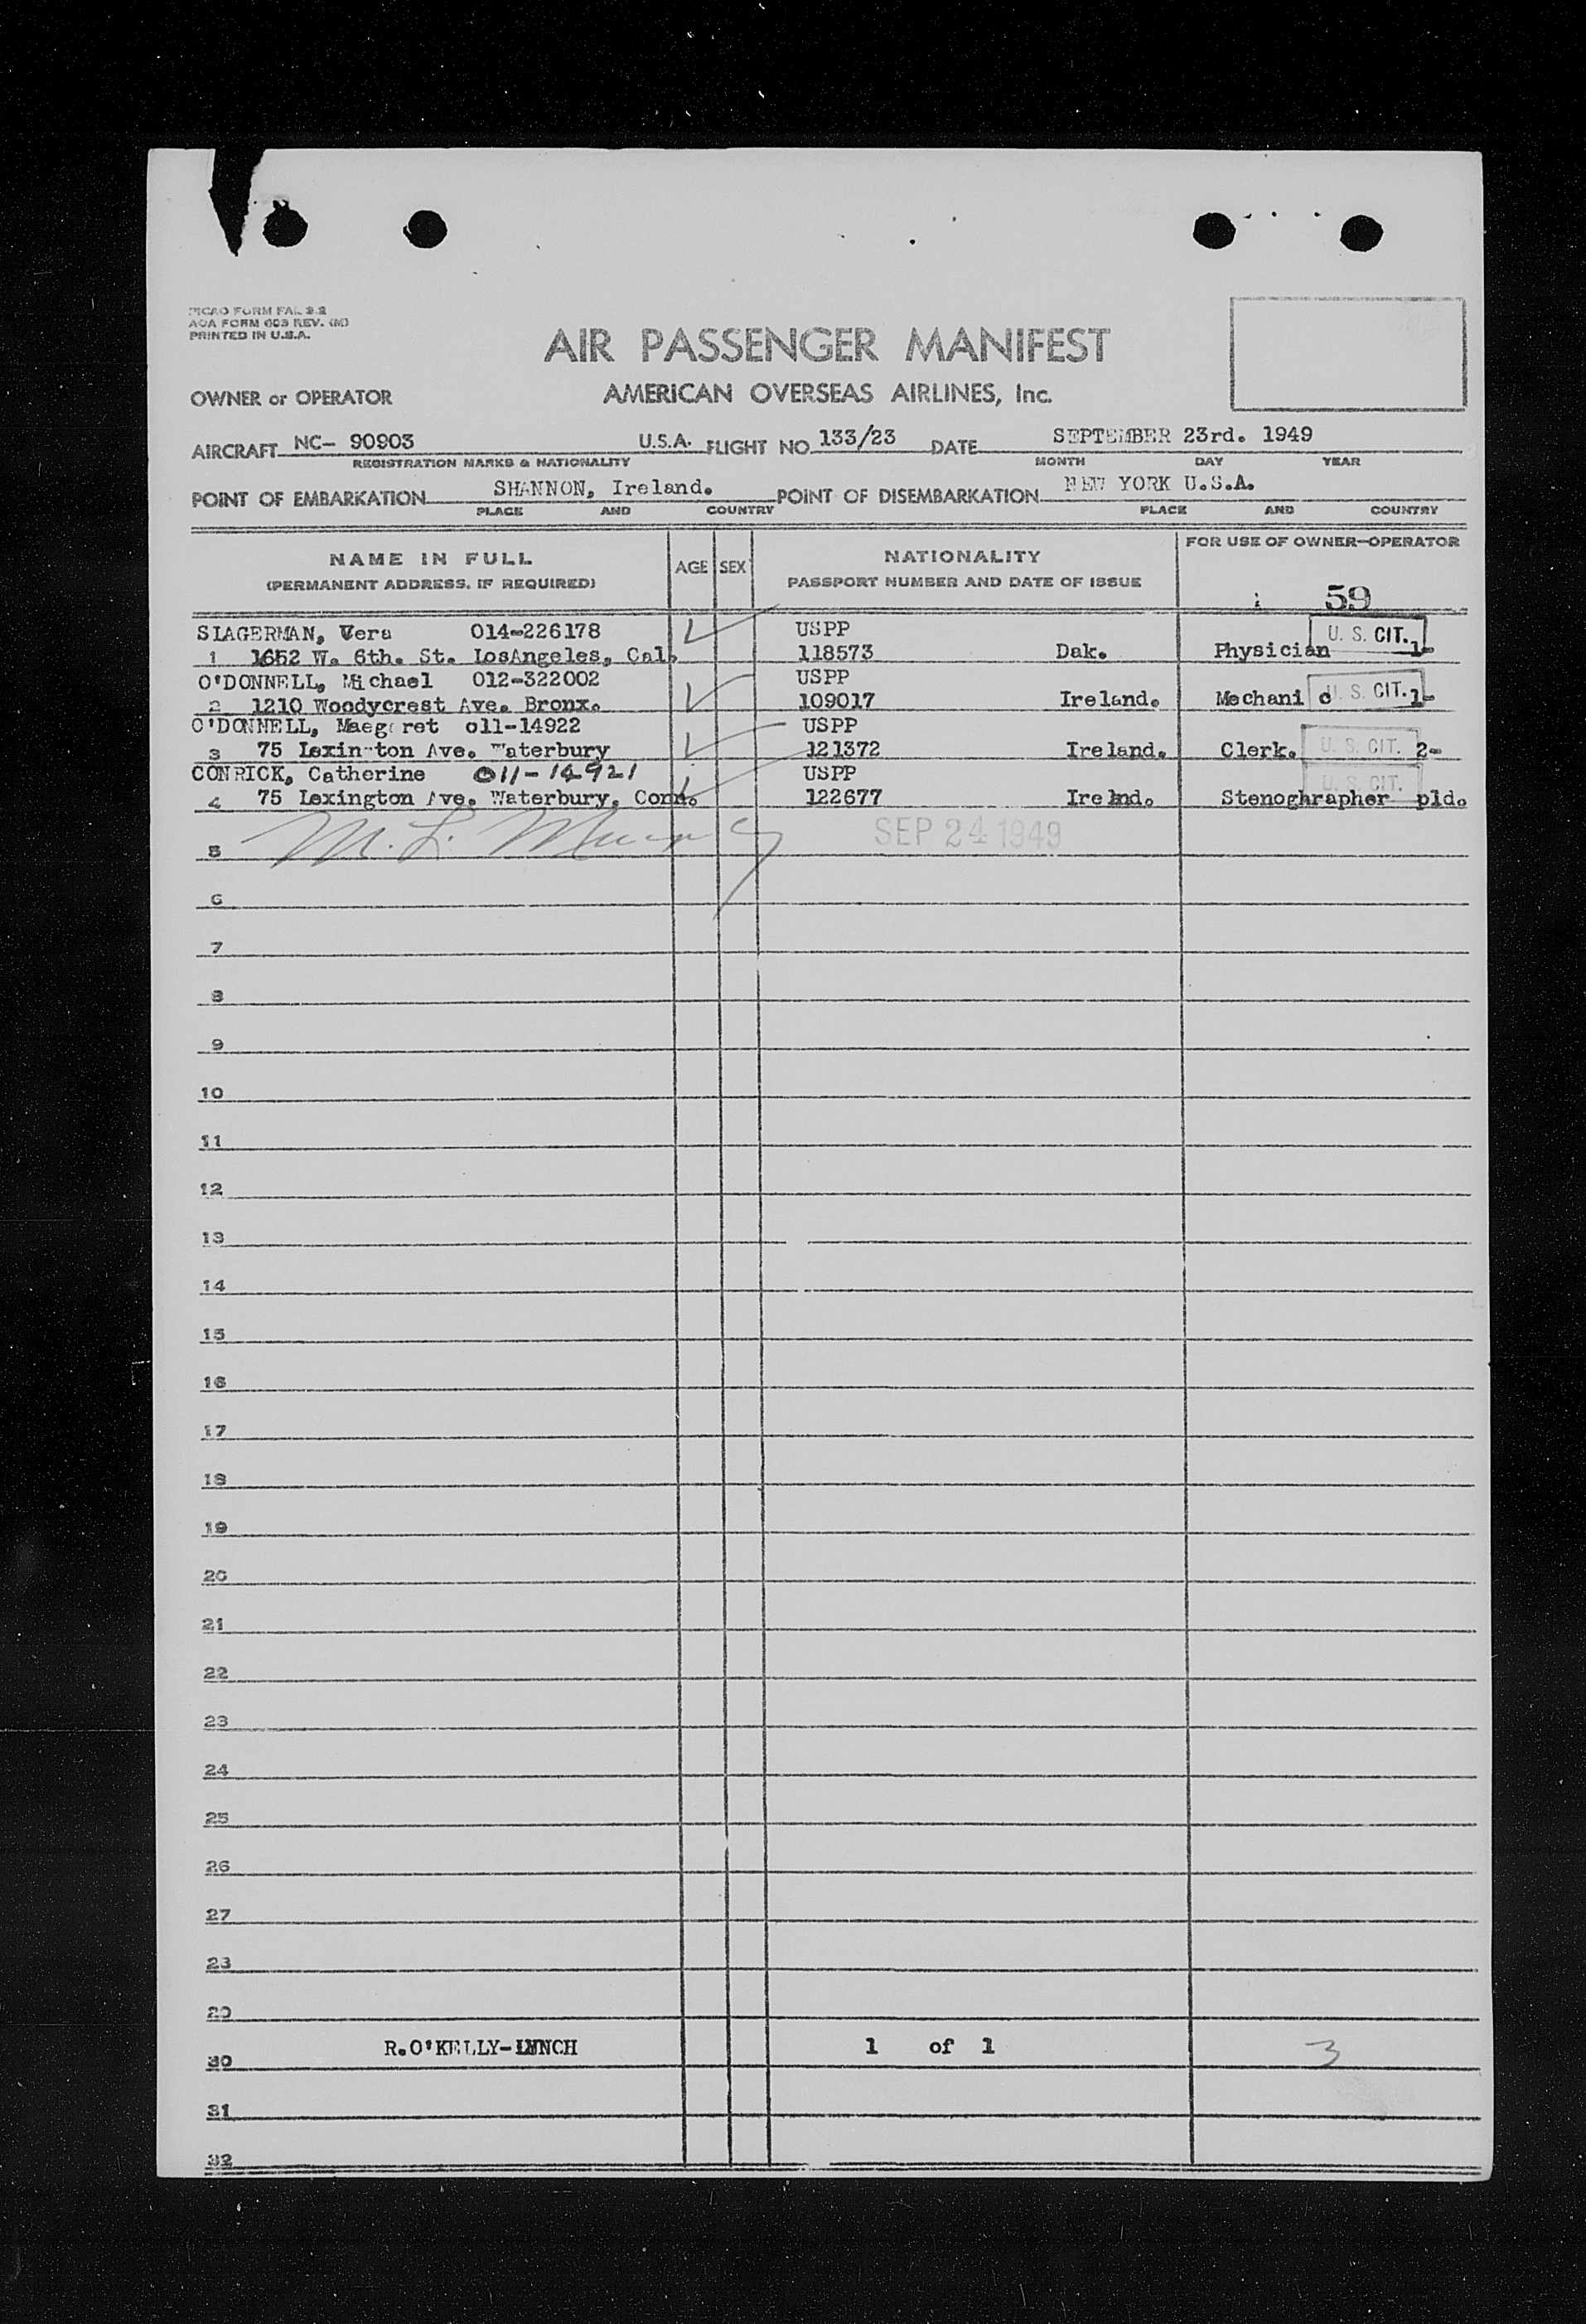 PICAO FORM FAL 2.2
AOA FORM 603 REV. (M)
PRINTED IN U.S.A.
AIR PASSENGER MANIFEST
OWNER or OPERATOR AMERICAN OVERSEAS AIRLINES, Inc.
AIRCRAFT NC- 90903 U.S.A. FLIGHT NO 133/23 DATE SEPTEMBER 23rd. 1949
REGISTRATION MARKS & NATIONALITY MONTH DAY YEAR
POINT OF EMBARKATION SHANNON, Ireland. POINT OF DISEMBARKATION NEW YORK U.S.A.
PLACE AND COUNTRY PLACE AND COUNTRY
NAME IN FULL AGE SEX NATIONALITY FOR USE OF OWNER-OPERATOR
(PERMANENT ADDRESS, IF REQUIRED) PASSPORT NUMBER AND DATE OF ISSUE
59
SLAGERMAN, Vera 014-226178 USPP U. S. CIT.
1 1652 W. 6th. St. LosAngeles, Cal. 118573 Dak. Physician 1-
O'DONNELL, Michael 012-322002 USPP U. S. CIT.
2 1210 Woodycrest Ave. Bronx. 109017 Ireland. Mechani c 1-
O'DONNELL, Maegaret o11-14922 USPP
3 75 Lexington Ave. Waterbury 121372 Ireland. Clerk. U. S. CIT. 2-
CONRICK, Catherine 011-14921 USPP U. S. CIT.
4 75 Lexington Ave. Waterbury, Conn. 122677 Ireland. Stenoghrapher pld.
5 M. L. SEP 24 1949
6
7
8
9
10
11
12
13
14
15
16
17
18
19
20
21
22
23
24
25
26
27
28
29
30 R.O'KELLY-LYNCH 1 of 1 3
31
32